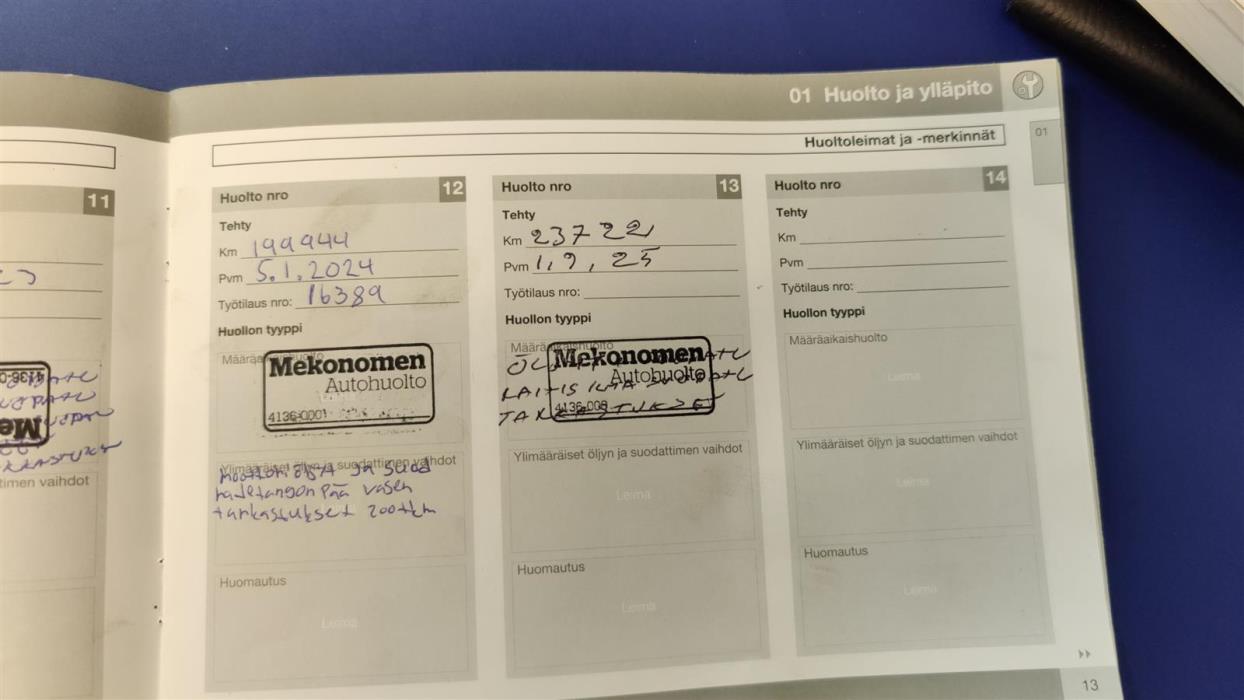 01 Huolto ja ylläpito
Huoltoleimat ja -merkinnät
01
11
timen vaihdot
Huolto nro 12
Tehty
Km 199944
Pvm 5.1.2024
Työtilaus nro: 16389
Huollon tyyppi
Määräaikaishuolto
Mekonomen
Autohuolto
4136-0001
Ylimääräiset öljyn ja suodattimen vaihdot
moottori öljyt ja suod
raidetangon pää vasen
tarkastukset 200tkm
Huomautus
Leima
Huolto nro 13
Tehty
Km 23722
Pvm 1,9, 25
Työtilaus nro:
Huollon tyyppi
Määräaikaishuolto
Mekonomen
Autohuolto
4136-000
Ylimääräiset öljyn ja suodattimen vaihdot
Leima
Huomautus
Leima
Huolto nro 14
Tehty
Km
Pvm
Työtilaus nro:
Huollon tyyppi
Määräaikaishuolto
Leima
Ylimääräiset öljyn ja suodattimen vaihdot
Leima
Huomautus
Leima
13